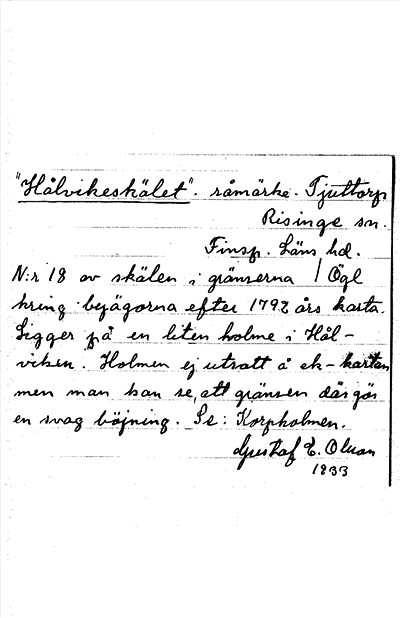 "Hålvikeskälet". råmärke. Tjuttorp
Risinge sn.
Finsp. Läns hd.
N:r 18 av skälen i gränserna / Ögl
kring bejägorna efter 1792 års karta.
Ligger på en liten holme i Hål-
viken. Holmen ej utsatt å ek-kartan
men man kan se, att gränsen där gör
en svag böjning. Se: Korpholmen.
Gustaf E. Olsson
1933